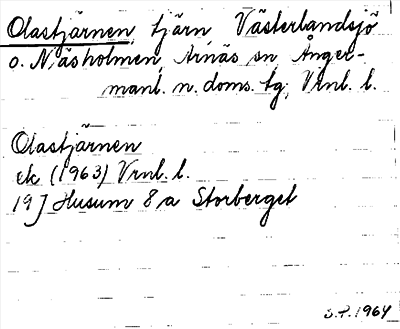 Olastjärnen, tjärn, Västerlandsjö
o. Näsholmen, Arnäs sn, Ånger-
manl. n. doms. tg, Vrnl. l.
Olastjärnen
ek (1963) Vrnl. l.
19J Husum 8 a Storberget
S.P. 1964